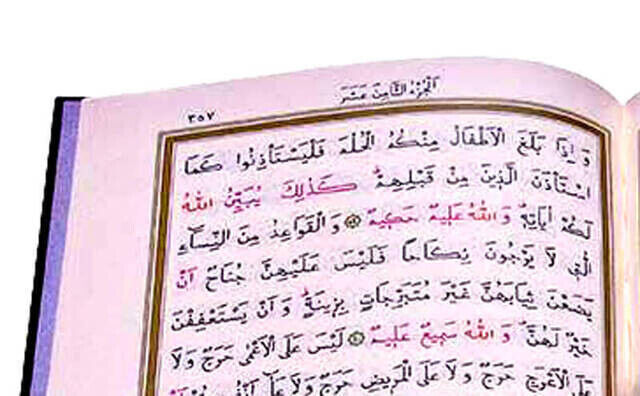 الجزء الثامن عشر
٣٥٧
وَاِذَا بَلَغَ الْاَطْفَالُ مِنْكُمُ الْحُلُمَ فَلْيَسْتَأْذِنُوا كَمَا
اسْتَأْذَنَ الَّذِينَ مِنْ قَبْلِهِمْ كَذٰلِكَ يُبَيِّنُ اللّٰهُ
لَكُمْ اٰيَاتِهِ وَاللّٰهُ عَلِيمٌ حَكِيمٌ ۝ وَالْقَوَاعِدُ مِنَ النِّسَاءِ
الّٰتِي لَا يَرْجُونَ نِكَاحًا فَلَيْسَ عَلَيْهِنَّ جُنَاحٌ اَنْ
يَضَعْنَ ثِيَابَهُنَّ غَيْرَ مُتَبَرِّجَاتٍ بِزِينَةٍ وَاَنْ يَسْتَعْفِفْنَ
خَيْرٌ لَهُنَّ وَاللّٰهُ سَمِيعٌ عَلِيمٌ ۝ لَيْسَ عَلَى الْاَعْمٰى حَرَجٌ وَلَا
عَلَى الْاَعْرَجِ حَرَجٌ وَلَا عَلَى الْمَرِيضِ حَرَجٌ وَلَا عَلٰى